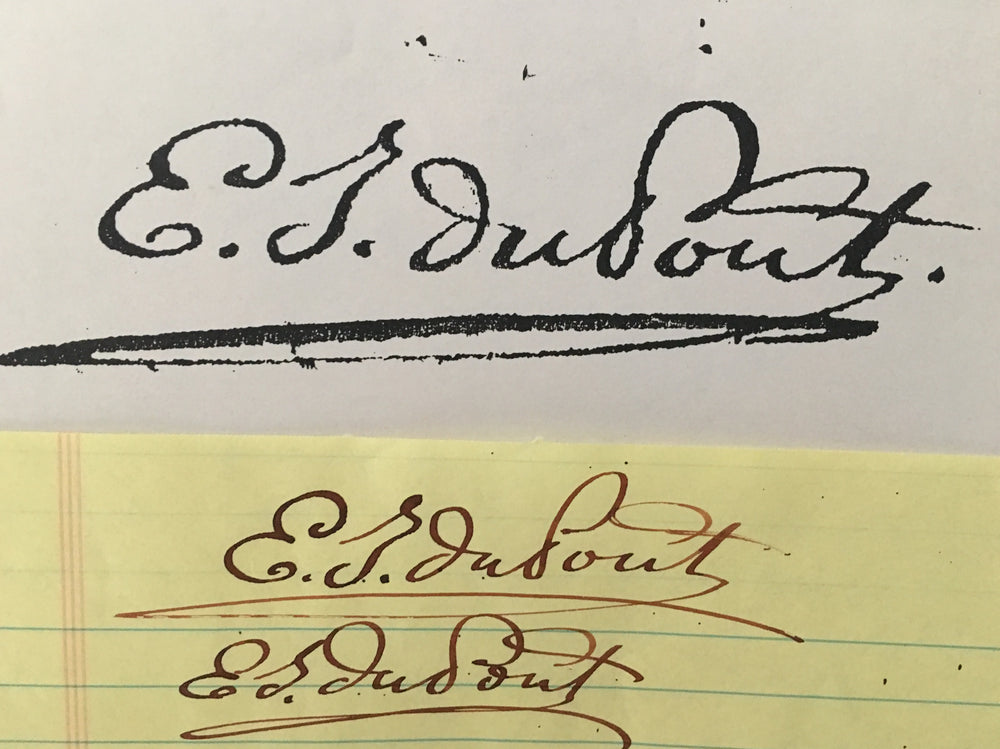 E. I. duPont.
E. I. duPont
E I. duPont